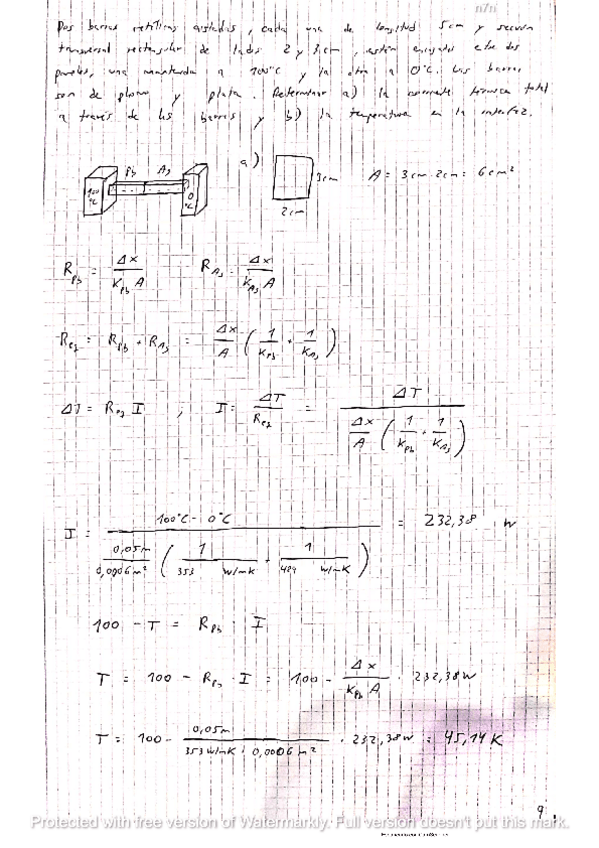 n7n
Dos barras metálicas aisladas, cada una de longitud 5cm y sección
transversal rectangular de lados 2 y 3cm, están encajadas entre dos
paredes, una mantenida a 100°C y la otra a 0°C. Las barras
son de plomo y plata. Determinar a) la corriente térmica total
a través de las barras y b) la temperatura en la interfaz.
Pb Ag
100 °C
0 °C
a)
3cm
2cm
A = 3cm · 2cm = 6cm²
R_Pb = Δx / (K_Pb A) R_Ag = Δx / (K_Ag A)
R_eq = R_Pb + R_Ag = Δx/A (1/K_Pb + 1/K_Ag)
ΔT = R_eq I ; I = ΔT / R_eq = ΔT / (Δx/A (1/K_Pb + 1/K_Ag))
I = (100°C - 0°C) / (0,05m / 0,0006m² (1 / 353 W/mK + 1 / 429 W/mK)) = 232,38 W
100 - T = R_Pb · I
T = 100 - R_Pb · I = 100 - Δx / (K_Pb A) · 232,38W
T = 100 - 0,05m / (353 W/mK · 0,0006 m²) · 232,38W = 45,14 K
9
Protected with free version of Watermarkly. Full version doesn't put this mark.